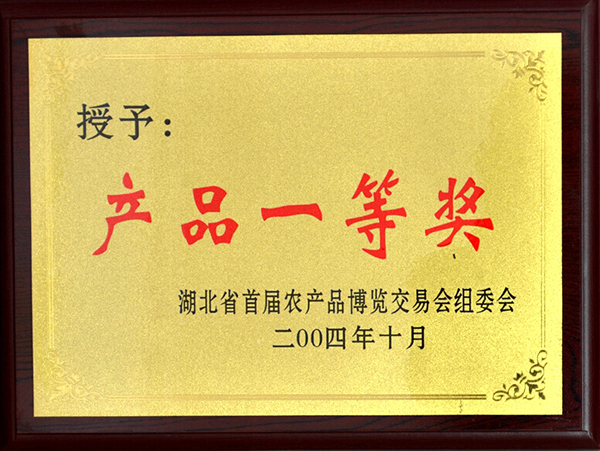 授予：
产品一等奖
湖北省首届农产品博览交易会组委会
二00四年十月